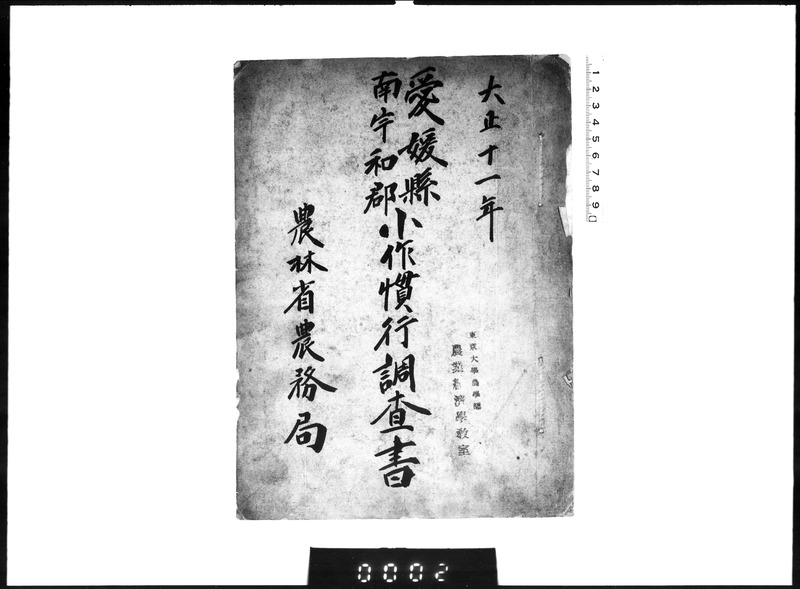 大正十一年
愛媛縣
南宇和郡
小作慣行調査書
農林省農務局
東京大學農學部
農業經濟學教室
1 2 3 4 5 6 7 8 9
0002